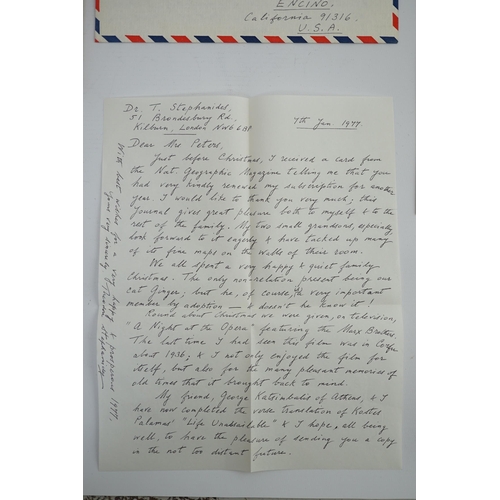 ENCINO.
California 91316.
U.S.A.
Dr. T. Stephanides,
51 Brondesbury Rd.,
Kilburn, London NW6 6BP
7th Jan. 1977.
Dear Mrs Peters,
Just before Christmas, I received a card from
the Nat. Geographic Magazine telling me that you
had very kindly renewed my subscription for another
year. I would like to thank you very much; this
Journal gives great pleasure both to myself & to the
rest of the family. My two small grandsons, especially,
look forward to it eagerly & have tacked up many
of its fine maps on the walls of their room.
We all spent a very happy & quiet family
Christmas. The only non-relation present being our
cat Ginger, but he, of course, is a very important
member by adoption — & doesn't he know it!
Round about Christmas we were given, on television,
"A Night at the Opera" featuring the Marx Brothers.
The last time I had seen this film was in Corfu
about 1936, & I not only enjoyed the film for
itself, but also for the many pleasant memories of
old times that it brought back to mind.
My friend, George Katsimbalis of Athens, & I
have now completed the verse translation of Kostes
Palamas' "Life Unassailable" & I hope, all being
well, to have the pleasure of sending you a copy
in the not too distant future.
With best wishes for a very happy & prosperous 1977.
Yours very sincerely Theodore Stephanides